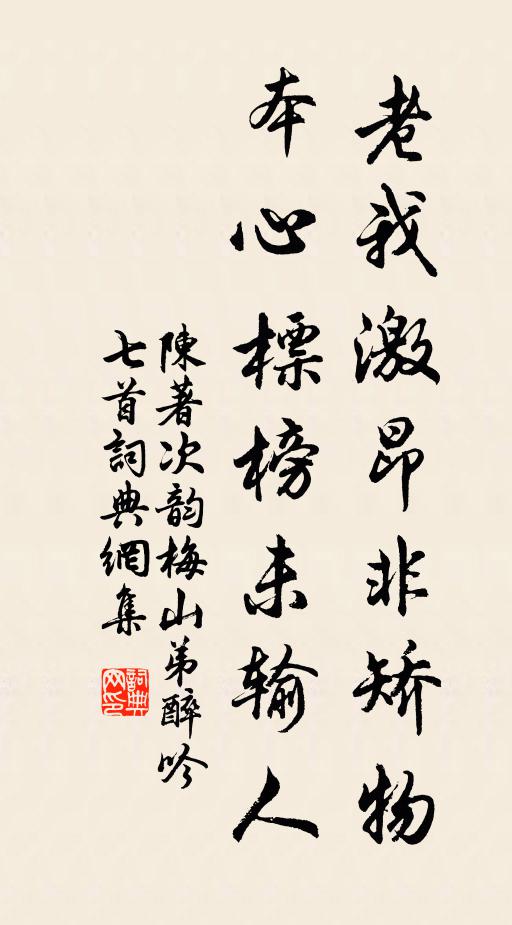 老我激昂非矯物
本心標榜未输人
陳著次韵梅山弟醉吟
七首詞典網集
詞典
网印